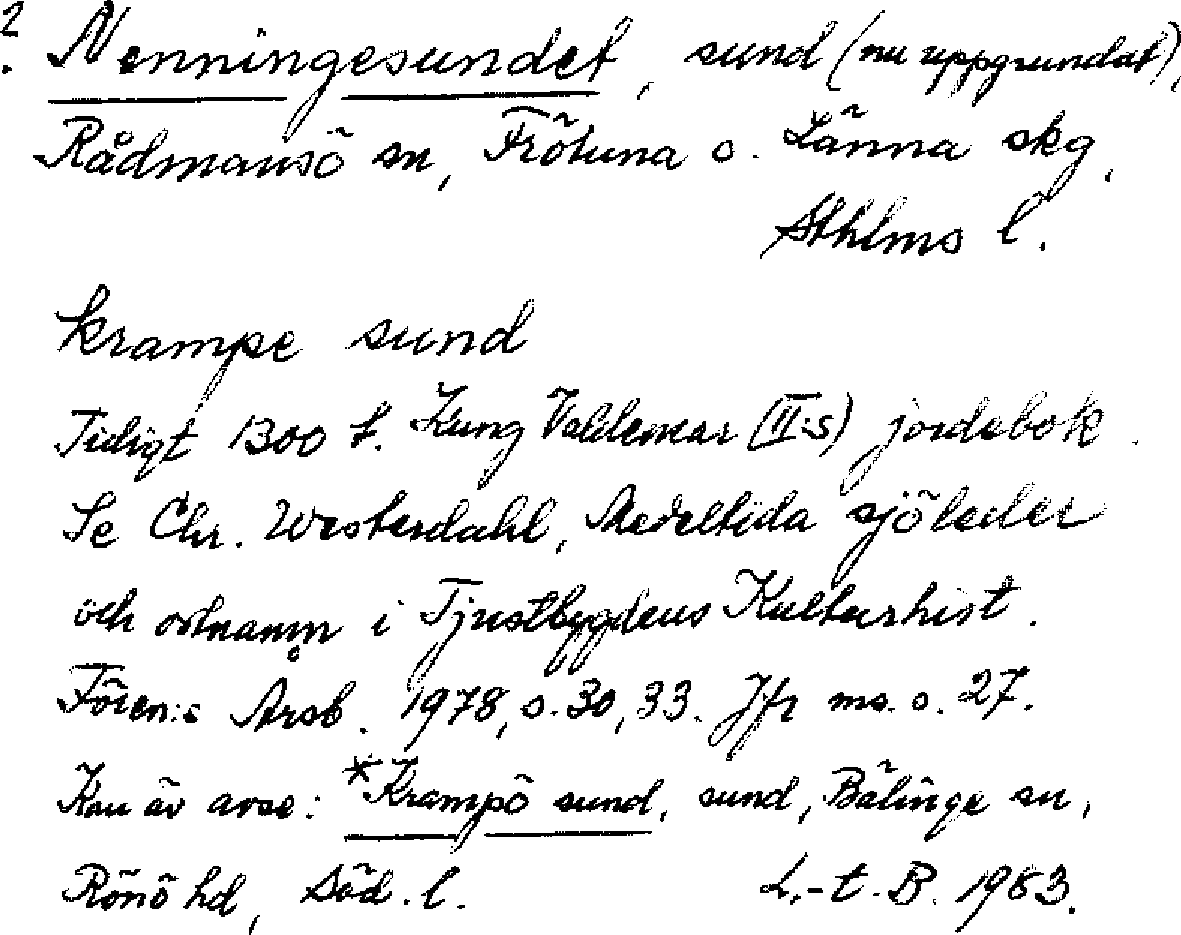 2. Nenningesundet, sund (nu uppgrundat),
Rådmansö sn, Frötuna o. Länna skg,
Sthlms l.
krampe sund
Tidigt 1300 t. Kung Valdemar (II:s) jordebok.
Se Chr. Westerdahl, Medeltida sjöleder
och ortnamn i Tjustbygdens Kulturhist.
Fören:s Årsb. 1978, s. 30, 33. Jfr ms. s. 27.
Kan äv avse: *Krampö sund, sund, Bälinge sn,
Rönö hd, Söd. l. L.-t. B. 1983.